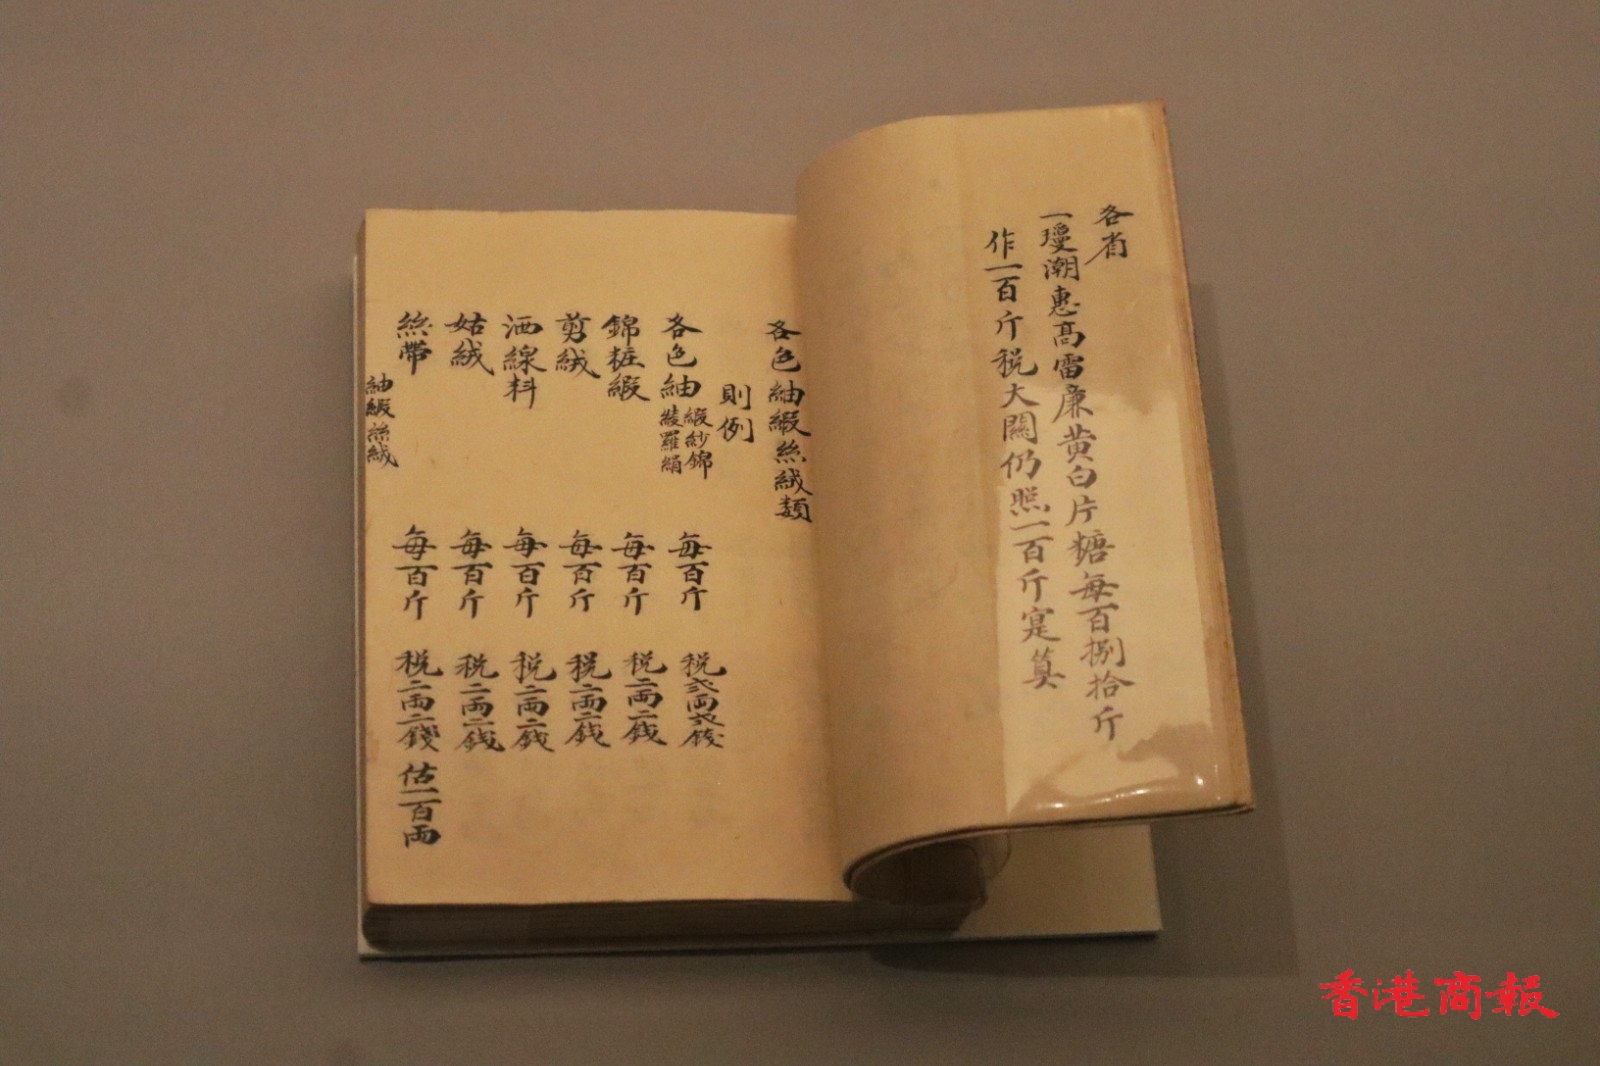 各省
一瓊潮惠高雷廉黄白片糖每百捌拾斤
作一百斤税大關仍照一百斤寔算
各色紬緞絲絨類
則例
各色紬緞紗錦綾羅絹 每百斤 税弍両弍錢
錦粧緞 每百斤 税二両二錢
剪絨 每百斤 税二両二錢
洒線料 每百斤 税二両二錢
姑絨 每百斤 税二両二錢
絲帶 每百斤 税二両二錢 估一百両
紬緞絲絨
香港商報